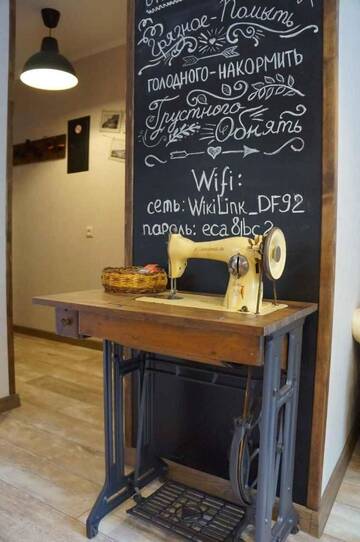 Грязное-Помыть
ГОЛОДНОГО-НАКОРМИТЬ
Грустного
Обнять
Wifi:
сеть: WikiLink_DF92
пароль: